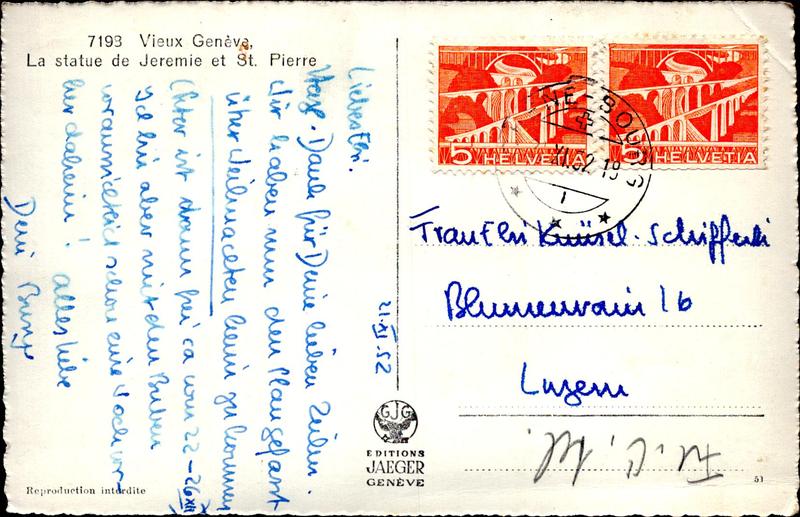 7193 Vieux Genève,
La statue de Jeremie et St. Pierre
21. XI. 52
Liebes Elsi.
Dank für Deine lieben Zeilen.
Wir haben nun den Plan gefasst
über Weihnachten heim zu kommen
ist dann frei ca vom 22-26 XII
Ich bin aber mit den Buben
schon eine Woche vor-
her daheim! alles liebe
Dein
5 HELVETIA
5 HELVETIA
BOURG
XI. 52 19
Frau Elsi Knüsel-Schifferli
Blumenrain 16
Luzern
GJG
EDITIONS
JAEGER
GENÈVE
Reproduction interdite
51